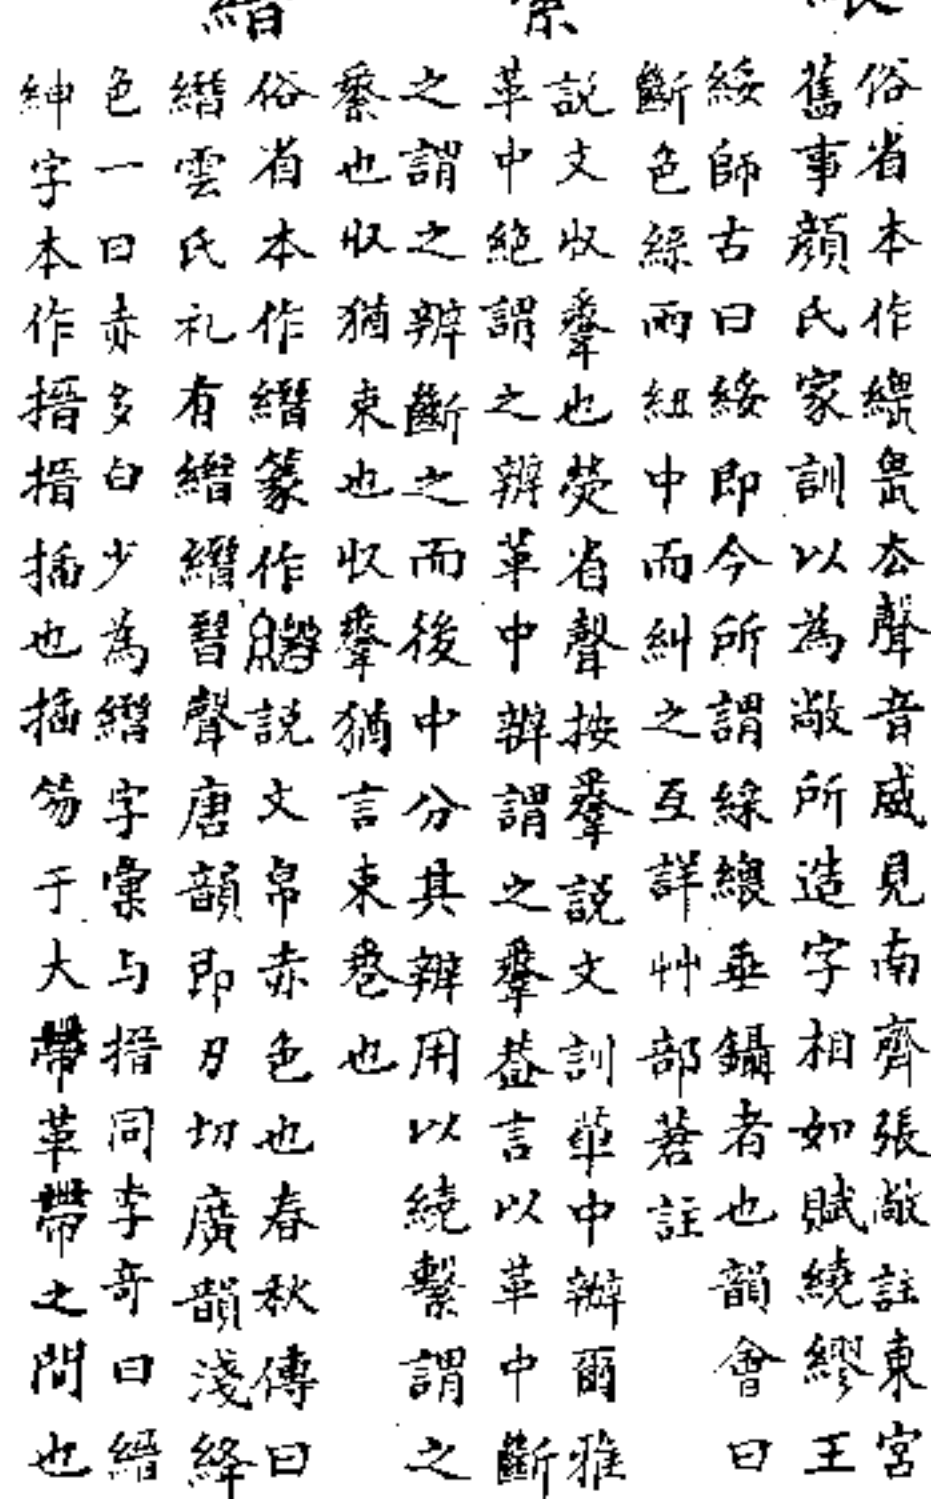 俗省本作縨畏厺聲音威見南齊張敞註東宮
舊事顏氏家訓以為敞所造字相如賦繞繆王
綏師古曰綏即今所謂綵縨垂鑷者也韻會曰
斷色綵而紐中而糾之互詳艸部莙註
縈
説文收鞶也熒省聲按鞶説文訓革中辦爾雅
革中絶謂之辨革中辦謂之鞶葢言以革中斷
之謂之辨斷之而後中分其辦用以繞繫謂之
鞶也收猶束也收鞶猶言束卷也
縉
俗省本作縉篆作説文帛赤色也春秋傳曰
縉雲氏礼有縉縉晉聲唐韻即刃切廣韻淺絳
色一曰赤多白少為縉字彙与搢同李奇曰縉
紳字本作搢搢插也插笏于大帶革帶之間也